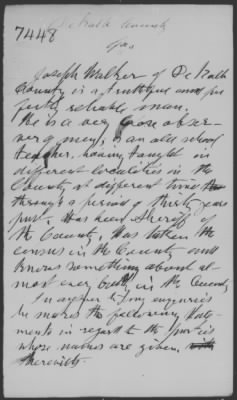 7448
DeKalb County
Gao
Joseph Walker of DeKalb
County is a truthful and per
fectly reliable man.
He is a very good obser-
ver of men, is an old school
teacher, having taught in
different localities in the
County at different times
through a period of thirty years
past. Has been Sheriff of
the County. Has taken the
census in the County and
knows something about al-
most every body in the County
In answer to my enquiries
he makes the following state-
ments in regard to the parties
whose names are given
herewith.